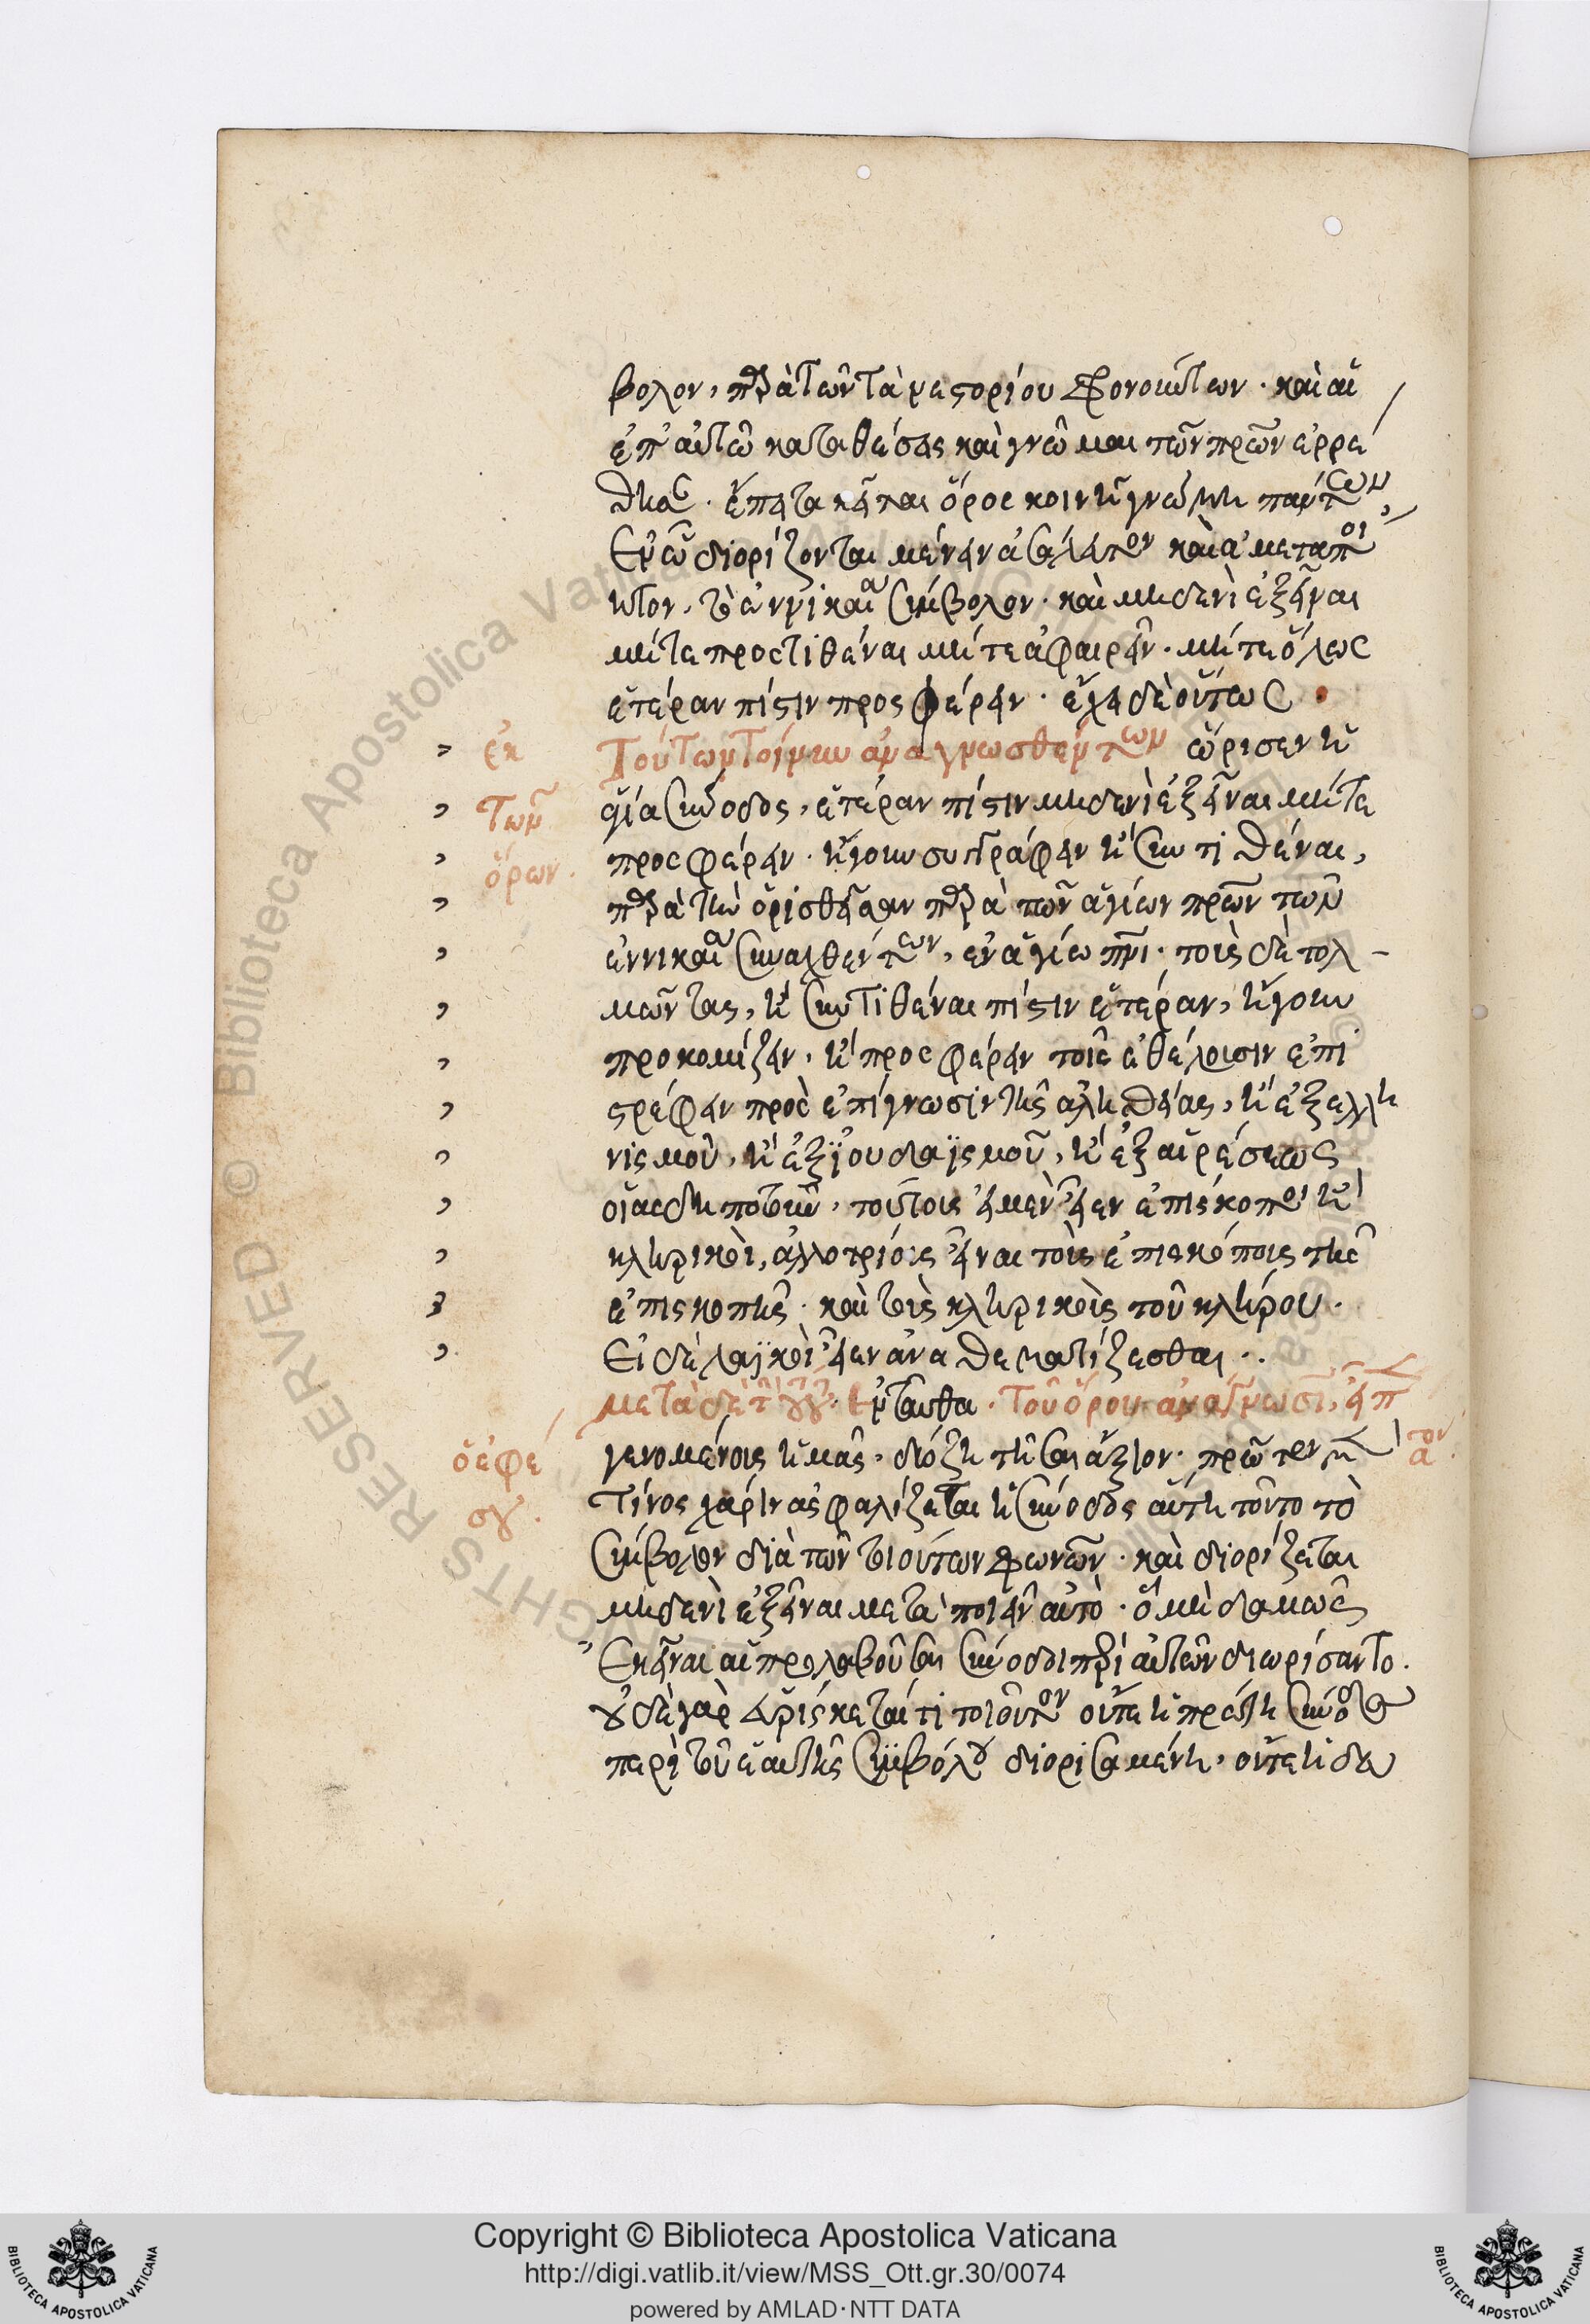 βολον, παρὰ τῶν τὰ νεστορίου φρονούντων. καὶ αἱ
ἐπ' αὐτῶ κατατεθεῖσαι καὶ γνῶμαι τῶν πρῶν ἐρρέ
θησ. ἔπειτα κεῖται ὅρος κοινῇ γνώμη πάντων,
Ἐν ὧ διορίζονται μένειν ἀσάλευτον καὶ ἀμεταποί
ητον, τὸ ἐν νικαία σύμβολον. καὶ μηδενὶ ἐξεῖναι
μήτε προστιθέναι μήτε ἀφαιρεῖν. μήτε ὅλως
ἑτέραν πίστιν προσφέρειν. ἔχει δὲ οὕτως.
ἐκ τῶν ὅρων.
Τούτων τοίνυν ἀναγνωσθέντων ὥρισεν ἡ
ἁγία σύνοδος, ἑτέραν πίστιν μηδενὶ ἐξεῖναι μήτε
προσφέρειν. ἤγουν συγγράφειν ἢ συντιθέναι,
παρὰ τὴν ὁρισθεῖσαν παρὰ τῶν ἁγίων πρῶν τῶν
ἐν νικαία συναχθέντων, ἐν ἁγίω πνι. τοὺς δὲ τολ-
μῶντας, ἢ συντιθέναι πίστιν ἑτέραν, ἤγουν
προκομίζειν, ἢ προσφέρειν τοῖς ἐθέλουσιν ἐπι
στρέφειν πρὸς ἐπίγνωσιν τῆς ἀληθείας, ἢ ἐξ ἑλλη
νισμοῦ, ἢ ἐξ ἰουδαϊσμοῦ, ἢ ἐξ αἱρέσεως
οἱασδηποτοῦν, τούτους εἰ μὲν εἶεν ἐπίσκοποι ἢ
κληρικοὶ, ἀλλοτρίους εἶναι τοὺς ἐπισκόπους τῆς
ἐπισκοπῆς. καὶ τοὺς κληρικοὺς τοῦ κλήρου.
Εἰ δὲ λαϊκοὶ εἶεν ἀναθεματίζεσθαι..
μετὰ δὲ τ̀ ἐνταυθα. τοῦ ὅρου ἀνάγνωσι,
ὁ ἐφέσου.
γενομένοις ἡμᾶς, διόξη τῆσαι ἄξιον. πρῶτον
α τον
τίνος χάριν ἀσφαλίζεται ἡ σύνοδος αὕτη τοῦτο τὸ
σύμβολον διὰ τῶν τοιούτων φωνῶν. καὶ διορίζεται
μηδενὶ ἐξεῖναι μεταποιεῖν αὐτὸ. ὃ μηδαμῶς
Ἐκεῖναι αἱ προλαβοῦσαι σύνοδοι περὶ αὐτῶν διωρίσαντο.
οὐδὲ γὰρ εὑρίσκεταί τι τοιοῦτον οὔτε ἡ πρώτη σύνοδος
περὶ τοῦ ἑαυτῆς συμβόλου διορισαμένη, οὔτε ἡ δευ